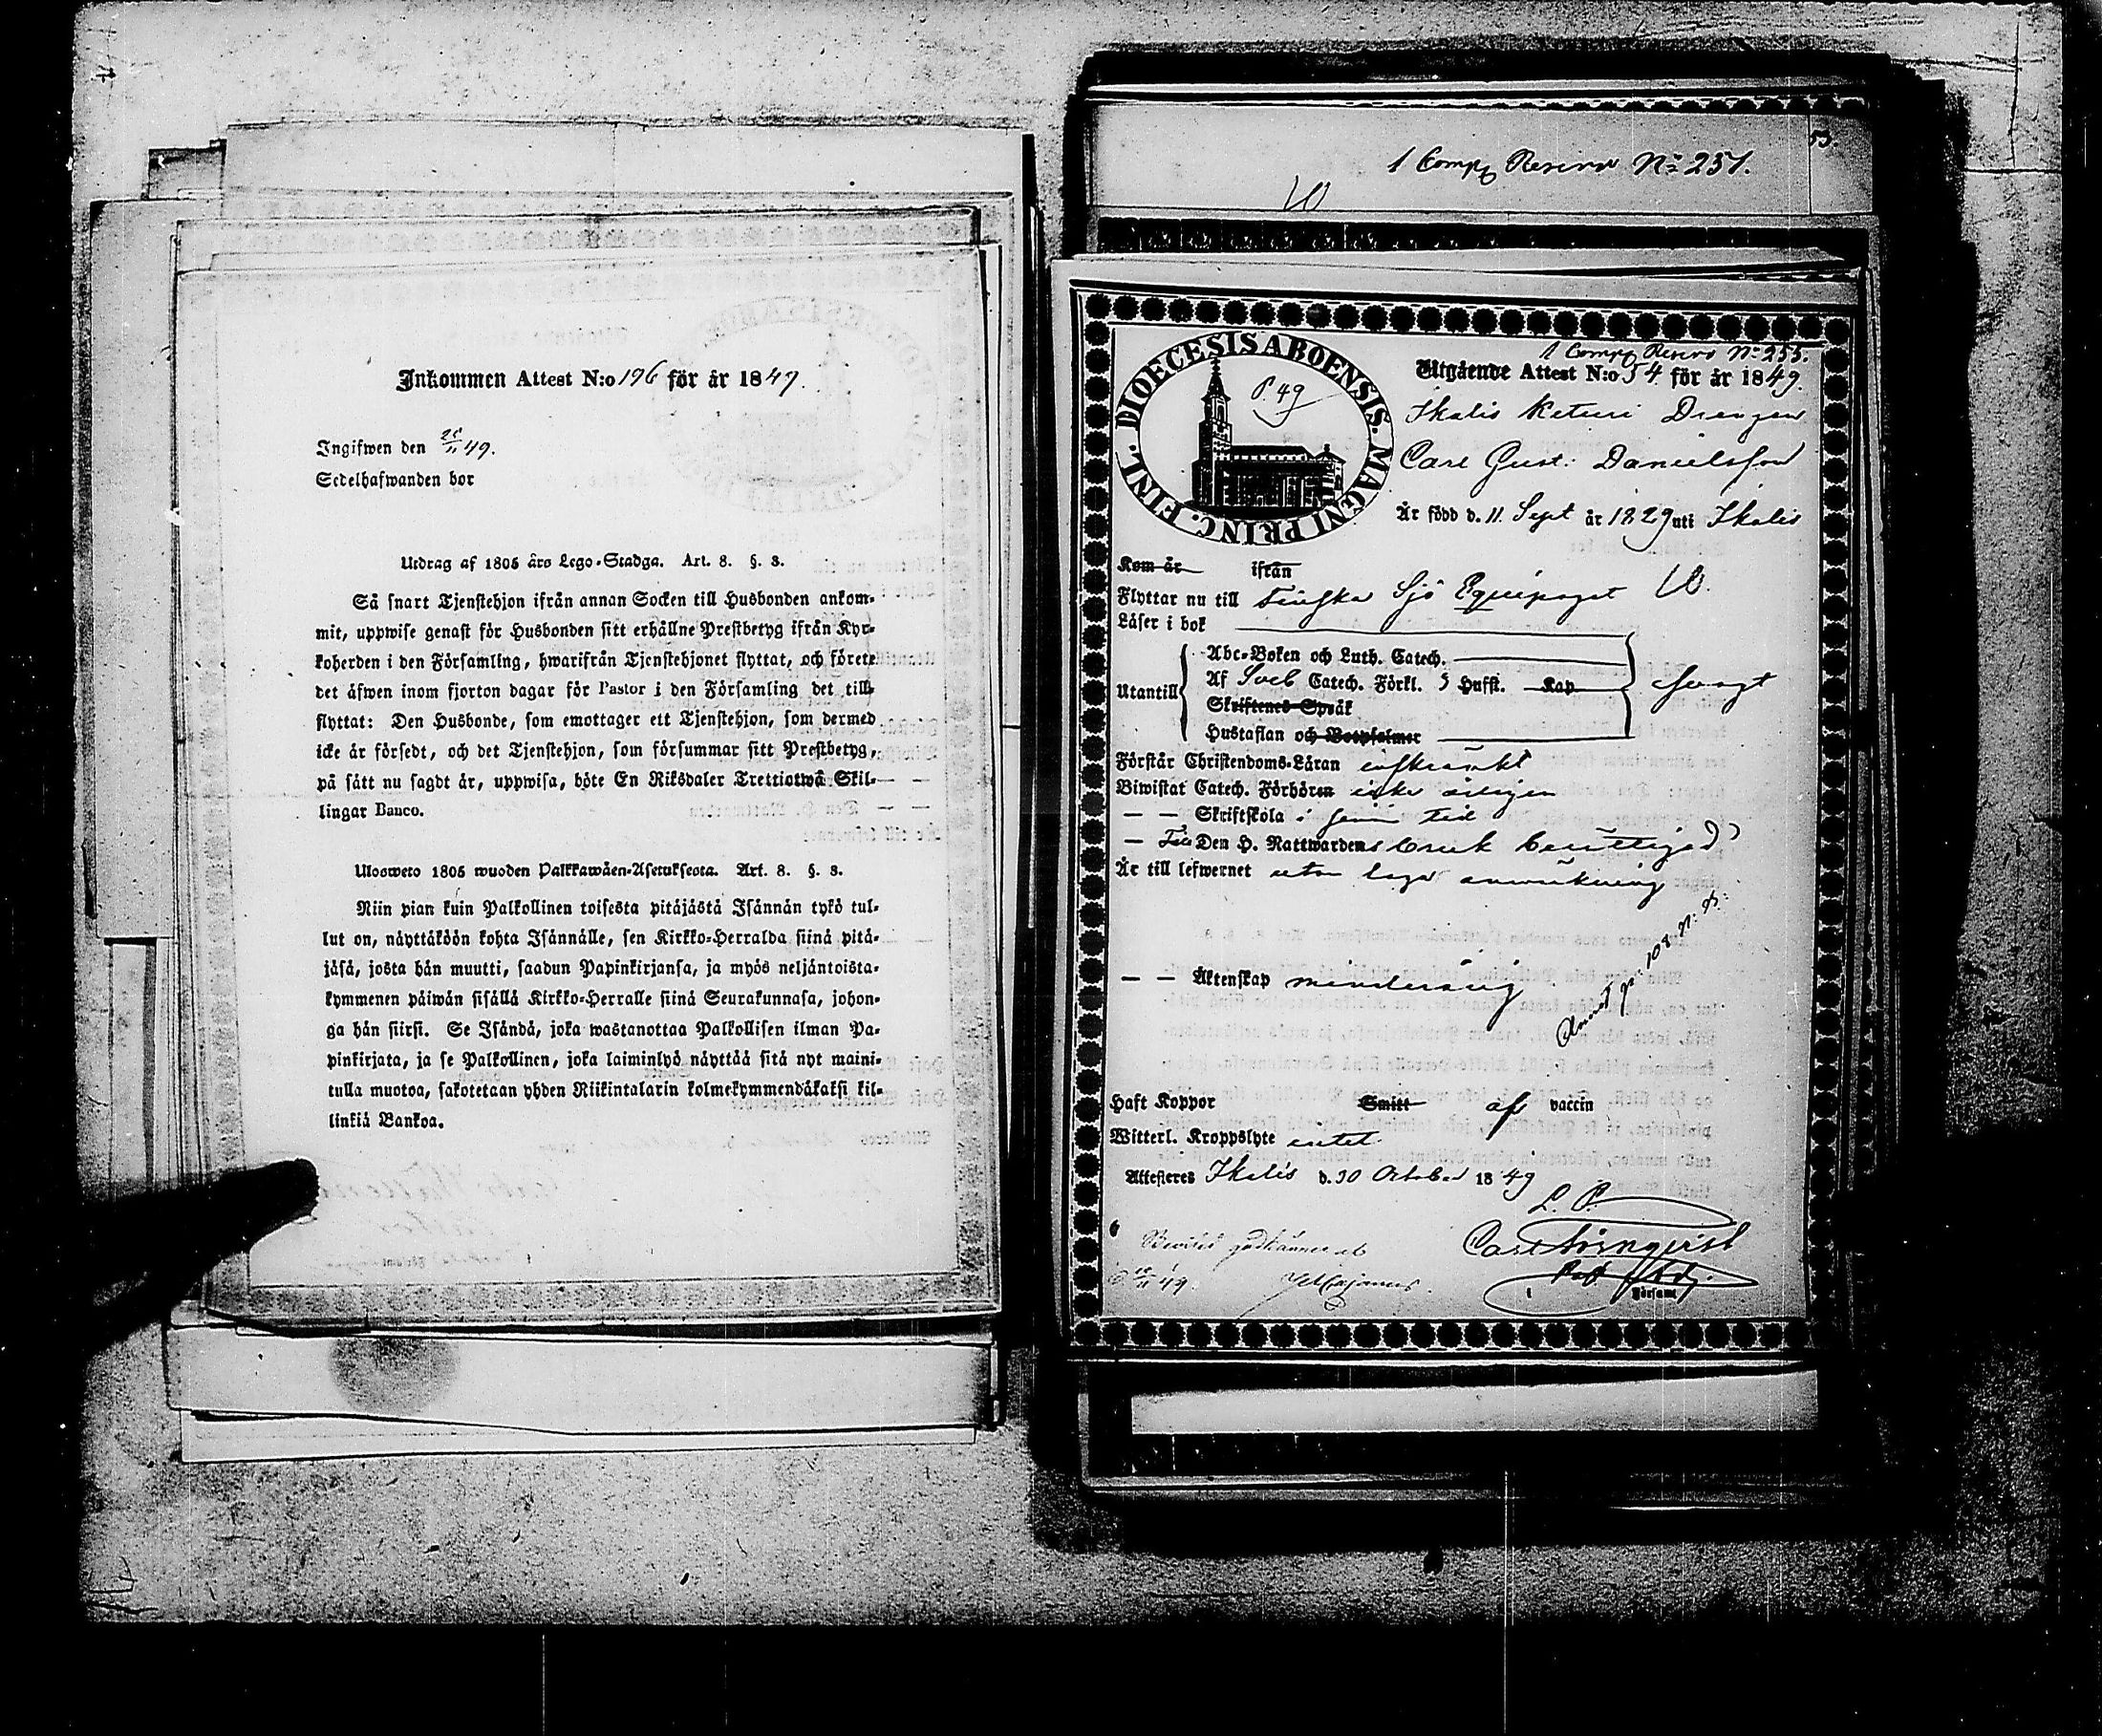 Inkommen Attest N:o 196 för år 1849.
Ingifwen den 25/11 49.
Sedelhafwanden bor
Utdrag af 1805 års Lego-Stadga. Art. 8. §. 3.
Så snart Tjenstehjon ifrån annan Socken till Husbonden ankom-
mit, uppwise genast för Husbonden sitt erhållne Prestbetyg ifrån Kyr-
koherden i den Församling, hwarifrån Tjenstehjonet flyttat, och förete
det äfwen inom fjorton dagar för Pastor i den Församling det till-
flyttat: Den Husbonde, som emottager ett Tjenstehjon, som dermed
icke är försedt, och det Tjenstehjon, som försummar sitt Prestbetyg,
på sätt nu sagdt är, uppwisa, böte En Riksdaler Trettiotwå Skil-
lingar Banco.
Ulosweto 1805 wuoden Palkkawäen-Asetuksesta. Art. 8. §. 3.
Niin pian kuin Palkollinen toisesta pitäjästä Isännän tykö tul-
lut on, näyttäköön kohta Isännälle, sen Kirkko-Herralda siinä pitä-
jäsä, josta hän muutti, saadun Papinkirjansa, ja myös neljäntoista-
kymmenen päiwän sisällä Kirkko-Herralle siinä Seurakunnasa, johon-
ga hän siirsi. Se Isändä, joka wastanottaa Palkollisen ilman Pa-
pinkirjata, ja se Palkollinen, joka laiminlyö näyttää sitä nyt maini-
tulla muotoa, sakotetaan yhden Riikintalarin kolmekymmendäkaksi kil-
linkiä Bankoa.
1 Comp Reserv No 251.
53.
1 Comp Reserv No 255.
DIOECESIS ABOENSIS. MAGNI PRINC. FINL.
P. 49
Utgående Attest N:o 54 för år 1849.
Ikalis Keturi Drengen
Carl Gust. Danielsson
Är född d. 11 Sept år 1829 uti Ikalis
Kom år ifrån
Flyttar nu till Finska Sjö Equipaget
Läser i bok
Abc-Boken och Luth. Catech.
Utantill Af Sveb Catech. Förkl. 5 Hufst. Kap svagt
Skriftenes Språk
Hustaflan och Botpsalmer
Förstår Christendoms-Läran inskränkt
Biwistat Catech. Förhören icke årligen
— — Skriftskola i sinom tid
— Till Den H. Nattwardens bruk berättigad
Är till lefwernet utan laga anmärkning
— — Äktenskap minderårig
108
Haft Koppor Smitt af vaccin
Witterl. Kroppslyte intet
Attesteres Ikalis d. 30 October 1849
L. P.
Carl
49.
Församl